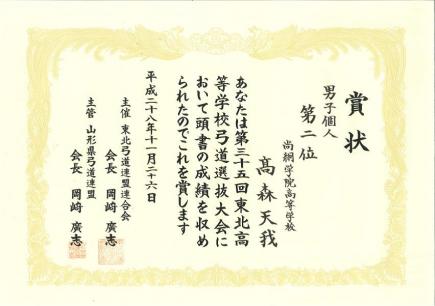 賞状
男子個人
第二位
尚絅学院高等学校
髙森天我
あなたは第三十五回東北高
等学校弓道選抜大会に
おいて頭書の成績を収め
られたのでこれを賞します
平成二十八年十一月二十六日
主催 東北弓道連盟連合会
会長 岡﨑廣志
主管 山形県弓道連盟
会長 岡﨑廣志